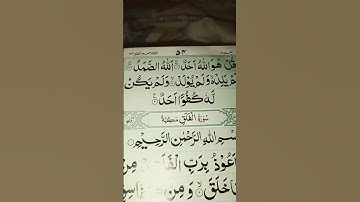 ۵۴
قُلْ هُوَ اللّٰهُ اَحَدٌ ۚ اَللّٰهُ الصَّمَدُ ۚ
لَمْ يَلِدْ ۙ وَلَمْ يُوْلَدْ ۙ وَلَمْ يَكُنْ
لَّهٗ كُفُوًا اَحَدٌ
سُوْرَةُ الْفَلَقِ مَكِّيَّةٌ
بِسْمِ اللّٰهِ الرَّحْمٰنِ الرَّحِيْمِ
اَعُوْذُ بِرَبِّ الْفَلَقِ مِنْ
مَا خَلَقَ ۙ وَمِنْ